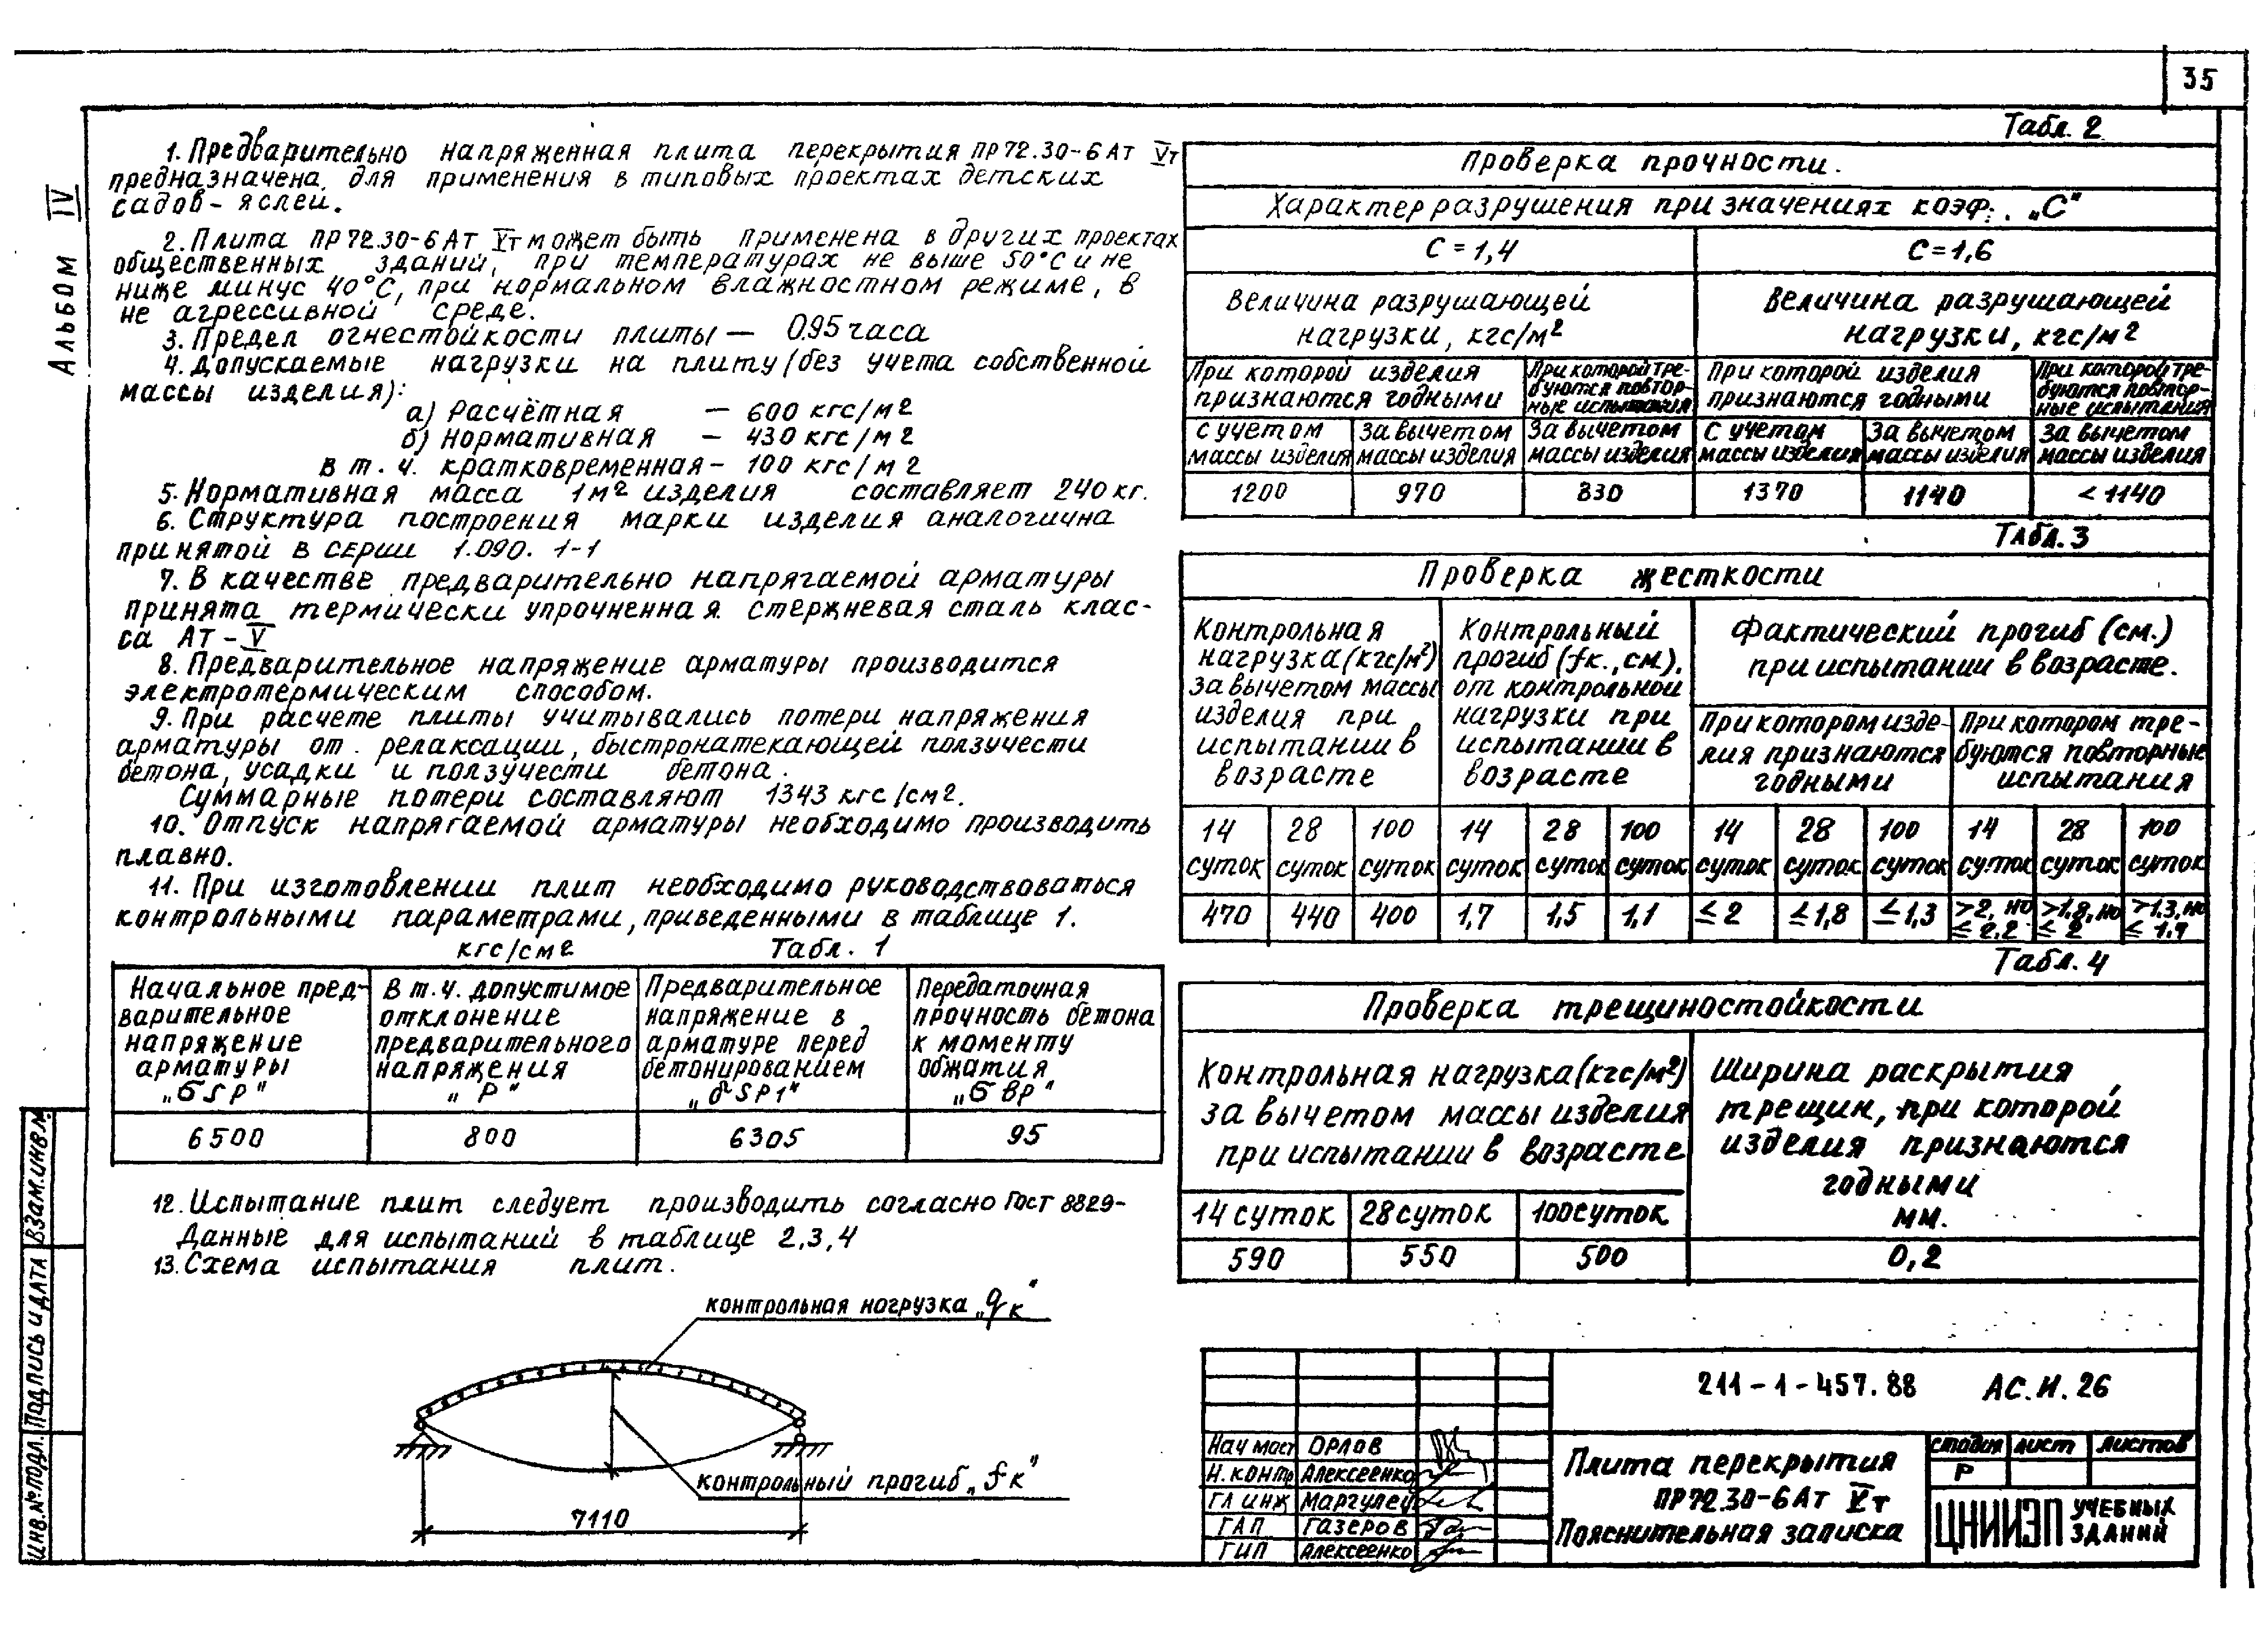 35
Альбом IV
1. Предварительно напряженная плита перекрытия ПР72.30-6Ат Vт
предназначена для применения в типовых проектах детских
садов-яслей.
2. Плита ПР72.30-6Ат Vт может быть применена в других проектах
общественных зданий, при температурах не выше 50°С и не
ниже минус 40°С, при нормальном влажностном режиме, в
не агрессивной среде.
3. Предел огнестойкости плиты — 0.95 часа
4. Допускаемые нагрузки на плиту (без учета собственной
массы изделия):
а) Расчётная — 600 кгс/м2
б) Нормативная — 430 кгс/м2
в т. ч. кратковременная - 100 кгс/м2
5. Нормативная масса 1м2 изделия составляет 240 кг.
6. Структура построения марки изделия аналогична
принятой в серии 1.090.1-1
7. В качестве предварительно напрягаемой арматуры
принята термически упрочненная стержневая сталь клас-
са Ат-V
8. Предварительное напряжение арматуры производится
электротермическим способом.
9. При расчете плиты учитывались потери напряжения
арматуры от релаксации, быстронатекающей ползучести
бетона, усадки и ползучести бетона.
Суммарные потери составляют 1343 кгс/см2.
10. Отпуск напрягаемой арматуры необходимо производить
плавно.
11. При изготовлении плит необходимо руководствоваться
контрольными параметрами, приведенными в таблице 1.
кгс/см2 Табл. 1
Начальное пред-
варительное
напряжение
арматуры
„бSP"
В т.ч. допустимое
отклонение
предварительного
напряжения
„Р"
Предварительное
напряжение в
арматуре перед
бетонированием
„бSP1"
Передаточная
прочность бетона
к моменту
обжатия
„б вр"
6500 800 6305 95
12. Испытание плит следует производить согласно Гост 8829-
Данные для испытаний в таблице 2,3,4
13. Схема испытания плит.
контрольная нагрузка „qк"
контрольный прогиб „fк"
7110
Табл. 2
Проверка прочности.
Характер разрушения при значениях коэф. „С"
С = 1,4 С=1,6
Величина разрушающей
нагрузки, кгс/м2
Величина разрушающей
нагрузки, кгс/м2
При которой изделия
признаются годными
При которой тре-
буются повтор-
ные испытания
При которой изделия
признаются годными
При которой тре-
буются повтор-
ные испытания
с учетом
массы изделия
За вычетом
массы изделия
За вычетом
массы изделия
С учетом
массы изделия
За вычетом
массы изделия
За вычетом
массы изделия
1200 970 830 1370 1140 < 1140
Табл. 3
Проверка жесткости
Контрольная
нагрузка (кгс/м2)
за вычетом массы
изделия при
испытании в
возрасте
Контрольный
прогиб (fк., см.),
от контрольной
нагрузки при
испытании в
возрасте
Фактический прогиб (см.)
при испытании в возрасте.
При котором изде-
лия признаются
годными
При котором тре-
буются повторные
испытания
14 28 100 14 28 100 14 28 100 14 28 100
суток суток суток суток суток суток суток суток суток суток суток суток
470 440 400 1,7 1,5 1,1 ≤2 ≤1,8 ≤1,3 >2, но >1,8, но >1,3, но
≤ 2,2 ≤ 2 ≤ 1,4
Табл. 4
Проверка трещиностойкости
Контрольная нагрузка (кгс/м2)
за вычетом массы изделия
при испытании в возрасте
Ширина раскрытия
трещин, при которой
изделия признаются
годными
мм.
14 суток 28 суток 100 суток
590 550 500 0,2
211-1-457.88 АС.И.26
Нач маст Орлов
Н. контр Алексеенко
Гл инж Маргулец
ГАП Газеров
ГИП Алексеенко
Плита перекрытия
ПР72.30-6Ат Vт
Пояснительная записка
стадия лист листов
Р
ЦНИИЭП учебных
зданий
Взам. инв. №
Подпись и дата
Инв. № подл.